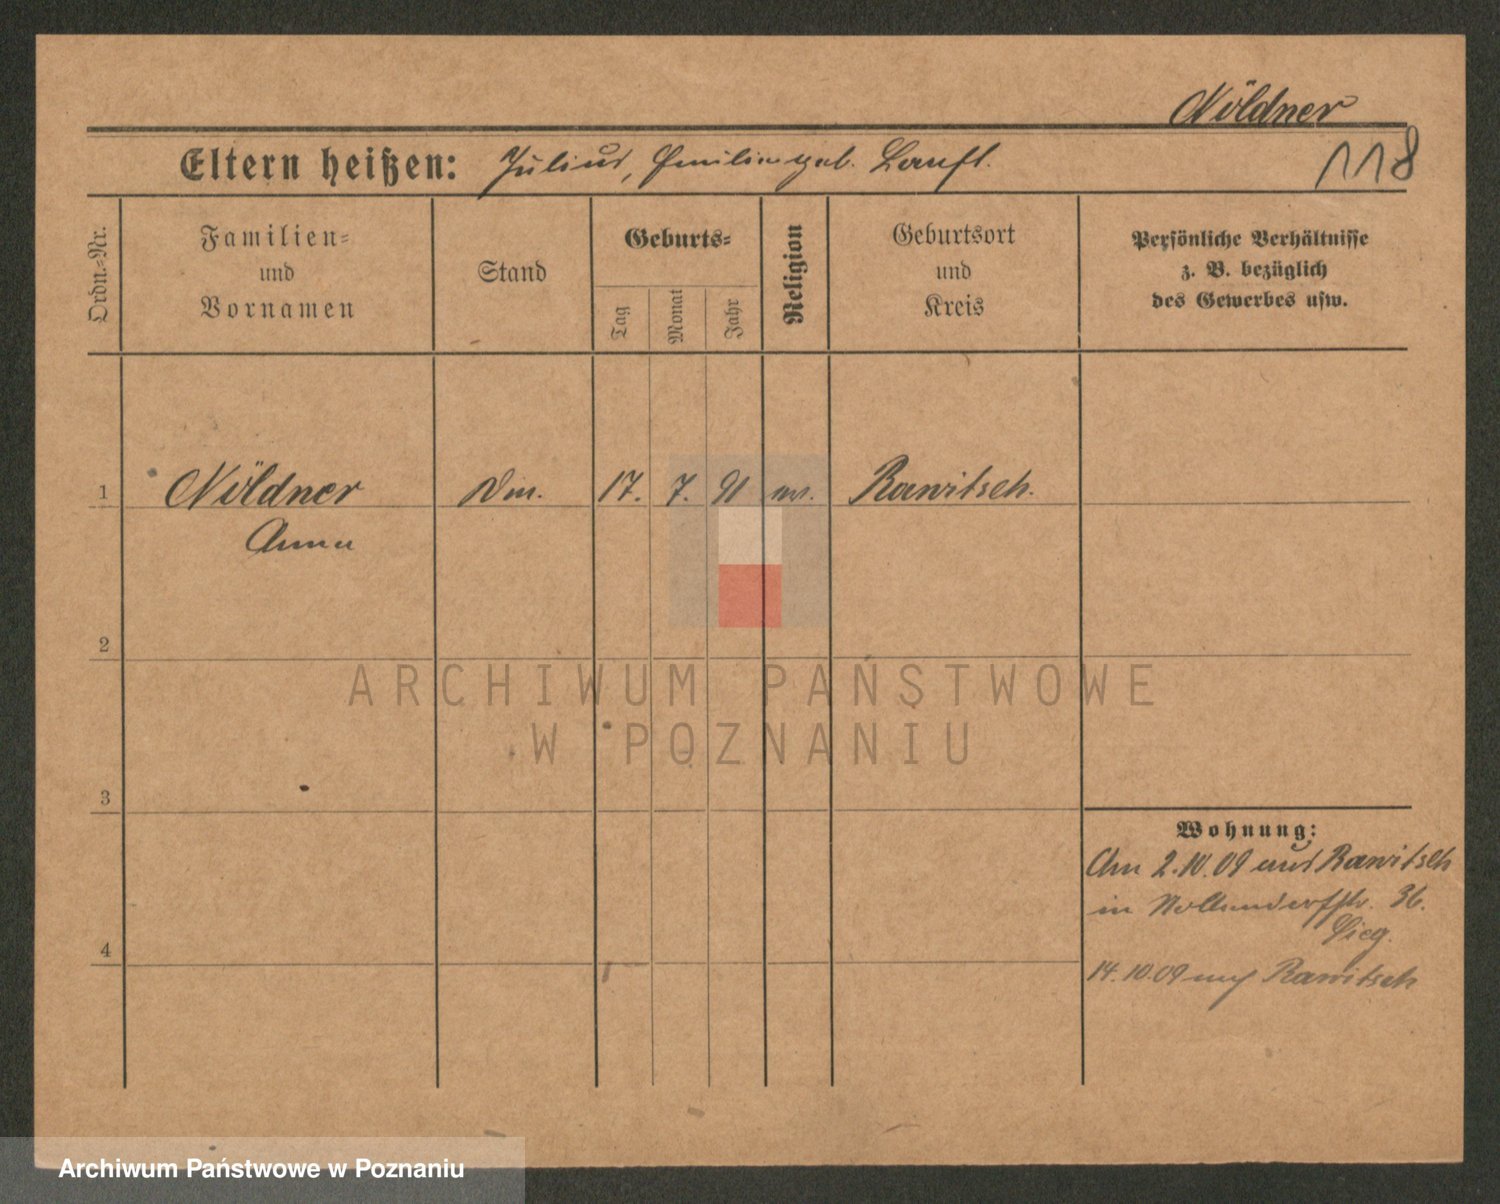 Nöldner
Eltern heißen: Julius, Emilie geb.
118
Ordn.-Nr.
Familien-
und
Vornamen
Stand
Geburts-
Tag
Monat
Jahr
Religion
Geburtsort
und
Kreis
Persönliche Verhältnisse
z. B. bezüglich
des Gewerbes usw.
1
Nöldner
Anna
17. 7. 91
Rawitsch.
2
ARCHIWUM PAŃSTWOWE
W POZNANIU
3
Wohnung:
Am 2.10.09 aus Rawitsch
in Nollendorfstr. 36.
4
14.10.09 nach Rawitsch
Archiwum Państwowe w Poznaniu